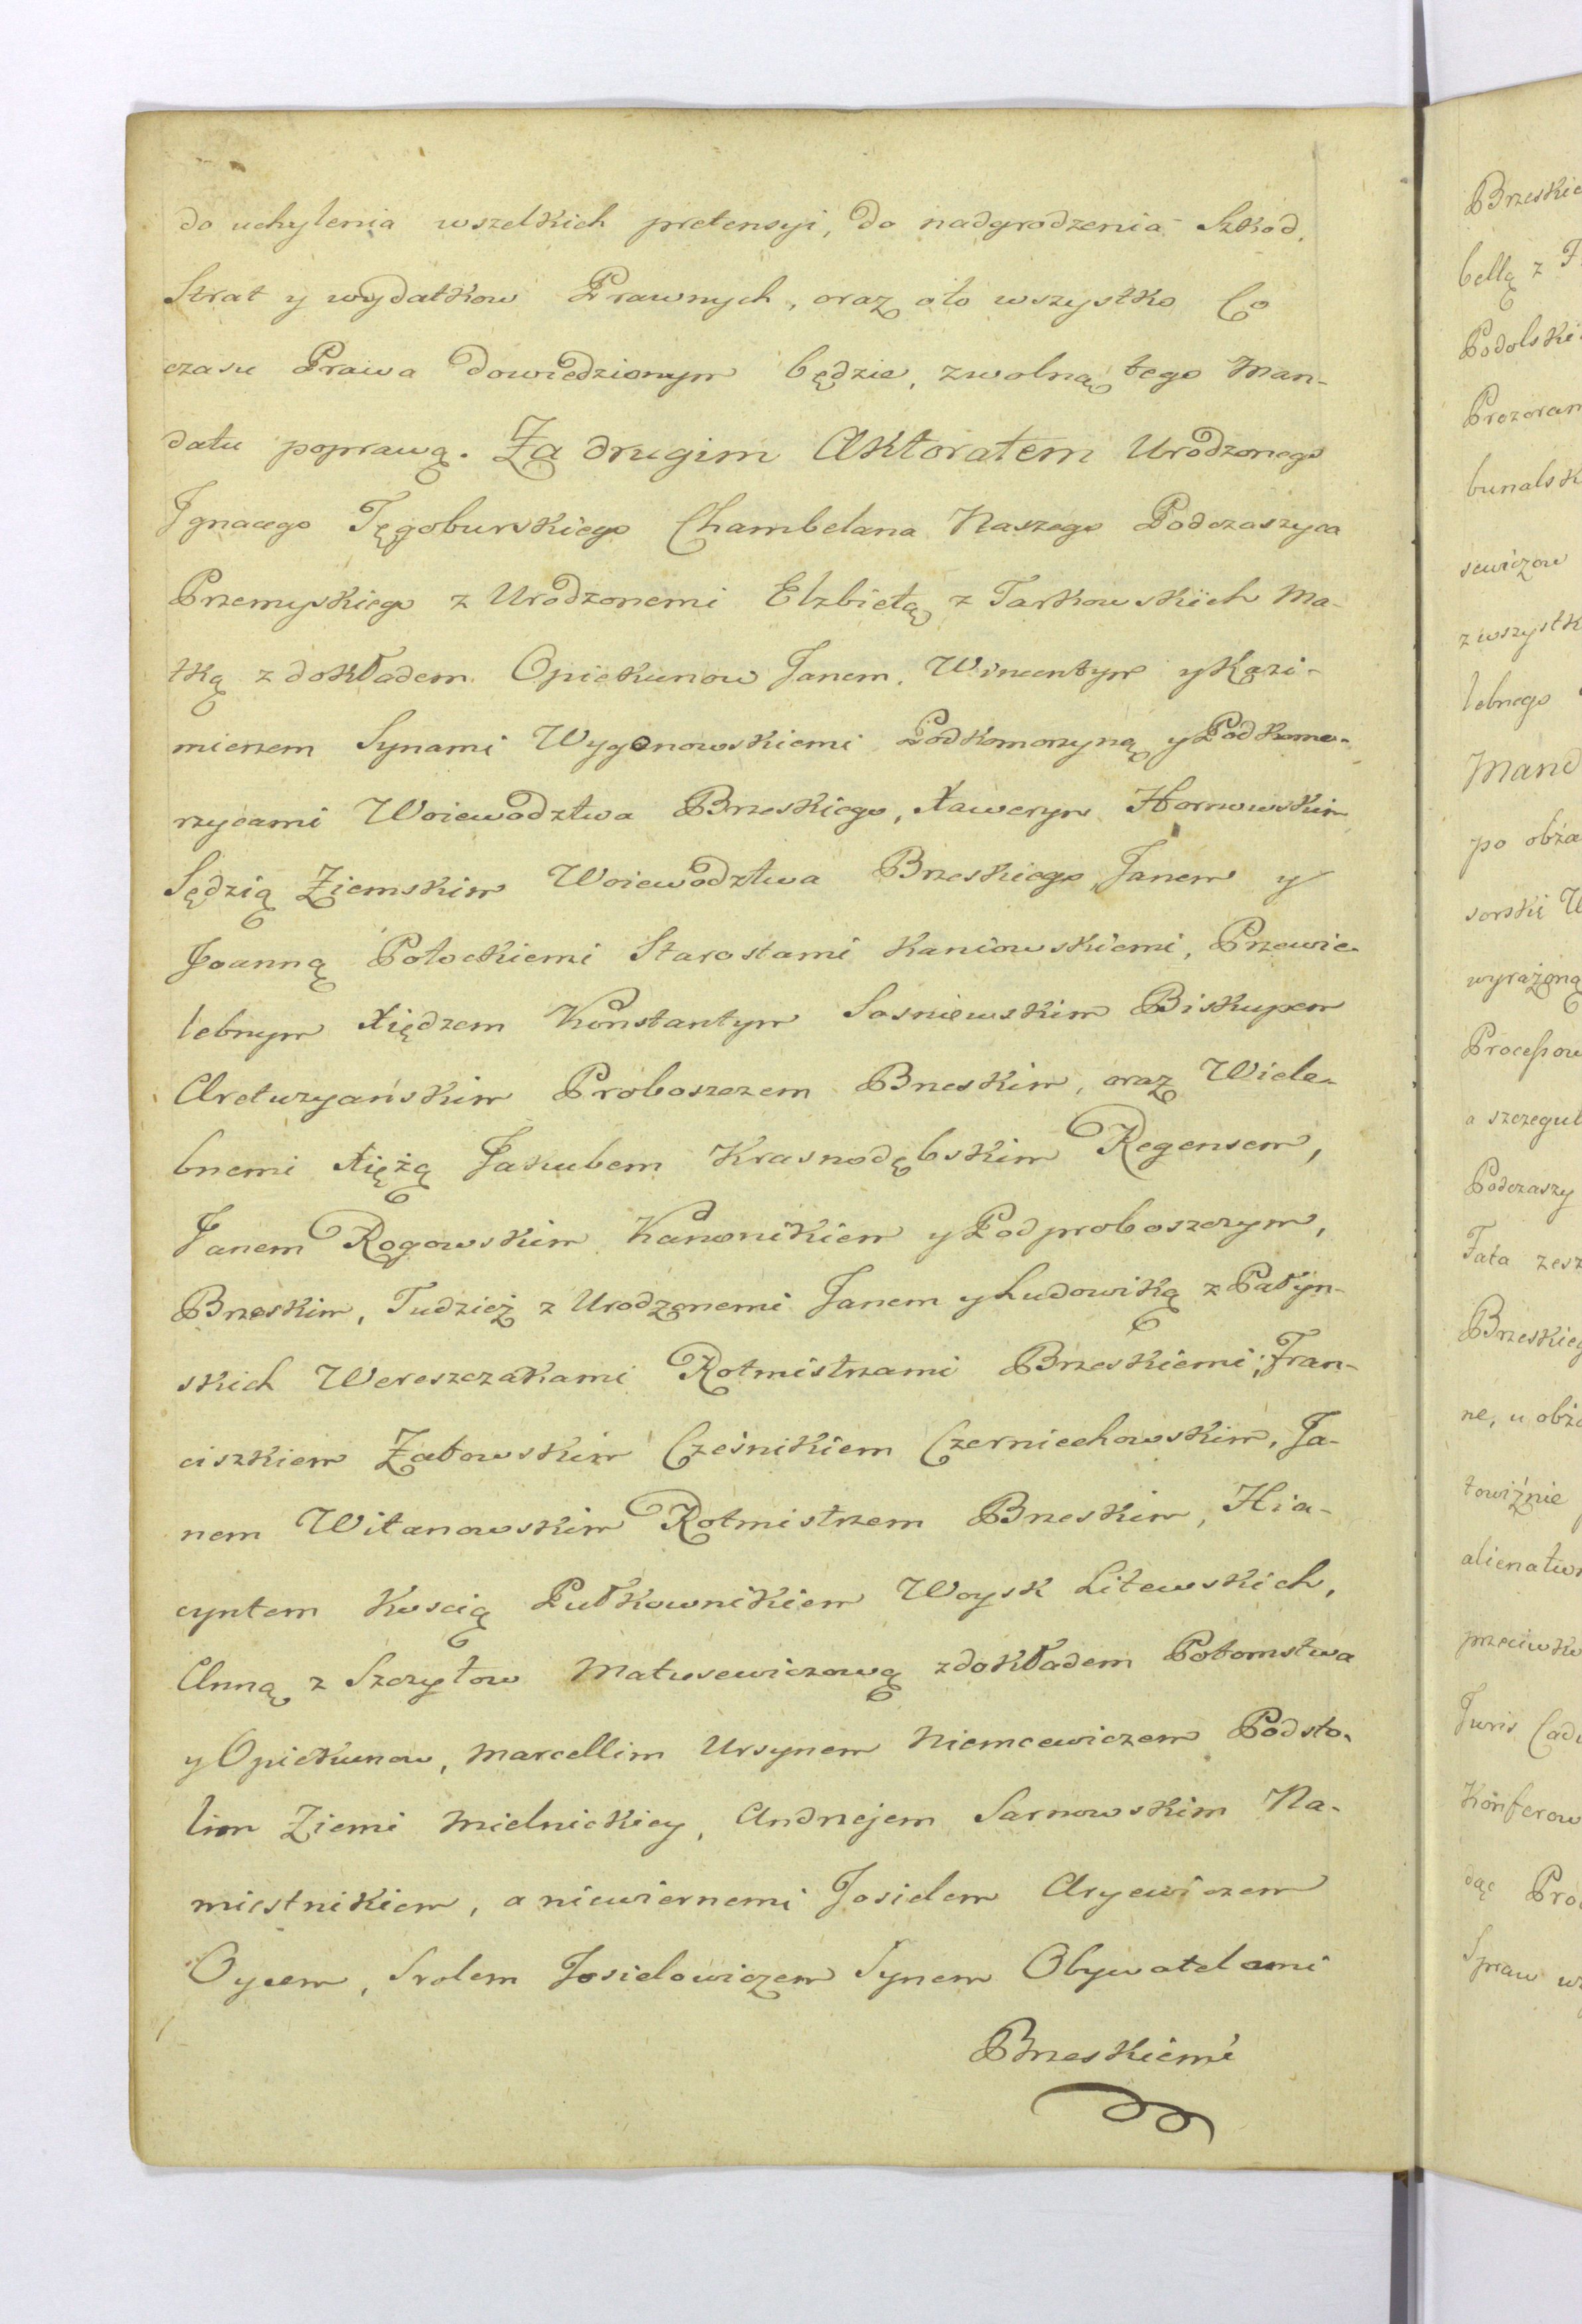 do uchylenia wszelkich pretensyi, do nadgrodzenia Szkod,
Strat y wydatkow Prawnych, oraz oto wszystko Co
czasu Prawa dowiedzionym będzie, zwolną tego Man-
datu poprawą. Za drugim Aktoratem Urodzonego
Ignacego Tęgoburskiego Chambelana Naszego Podczaszyca
Przemyskiego z Urodzonemi Elzbietą z Tarkowskich Ma-
tką z dokładem Opiekunow Janem, Wincentym y Kazi-
mierzem Synami Wygonowskiemi Podkomorzyną y Podkomo-
rzycami Woiewodztwa Brzeskiego, Xawerym Hornowskim
Sędzią Ziemskim Woiewodztwa Brzeskiego, Janem y
Joanną Potockiemi Starostami Kaniowskiemi, Przewie-
lebnym Xiędzem Konstantym Sosniewskim Biskupem
Aretuzyańskim Proboszczem Brzeskim, oraz Wiele-
bnemi Xiężą Jakubem Krasnodębskim Regensem,
Janem Rogowskim Kanonikiem y Podproboszczym,
Brzeskim, Tudzież z Urodzonemi Janem y Ludowiką z Pałyn-
skich Wereszczakami Rotmistrzami Brzeskiemi, Fran-
ciszkiem Załowskim Cześnikiem Czerniechowskim, Ja-
nem Witanowskim Rotmistrzem Brzeskim, Hia-
cyntem Koscią Pułkownikiem Woysk Litewskich,
Anną z Szczytow Matusewiczową z dokładem Potomstwa
y Opiekunow, Marcellim Ursynem Niemcewiczem Podsto-
lim Ziemi Mielnickiey, Andrzejem Sarnowskim Na-
miestnikiem, a niewiernemi Josielem Aryewiczem
Oycem, Srolem Josielowiczem Synem Obywatelami
Brzeskiemi
Brzeskie
bellą z
Podolski
Prozoran
bunalsk
sewiczow
z wszystk
lebnego
Mand
po obża
sorski
wyrażoną
Processow
a szczegul
Podczaszy
Tata zesz
Brzeskieg
ne, u obża
towiźnie
alienatw
przeciwko
Juris Cadu
Konferow
dąc Pro
Spraw w